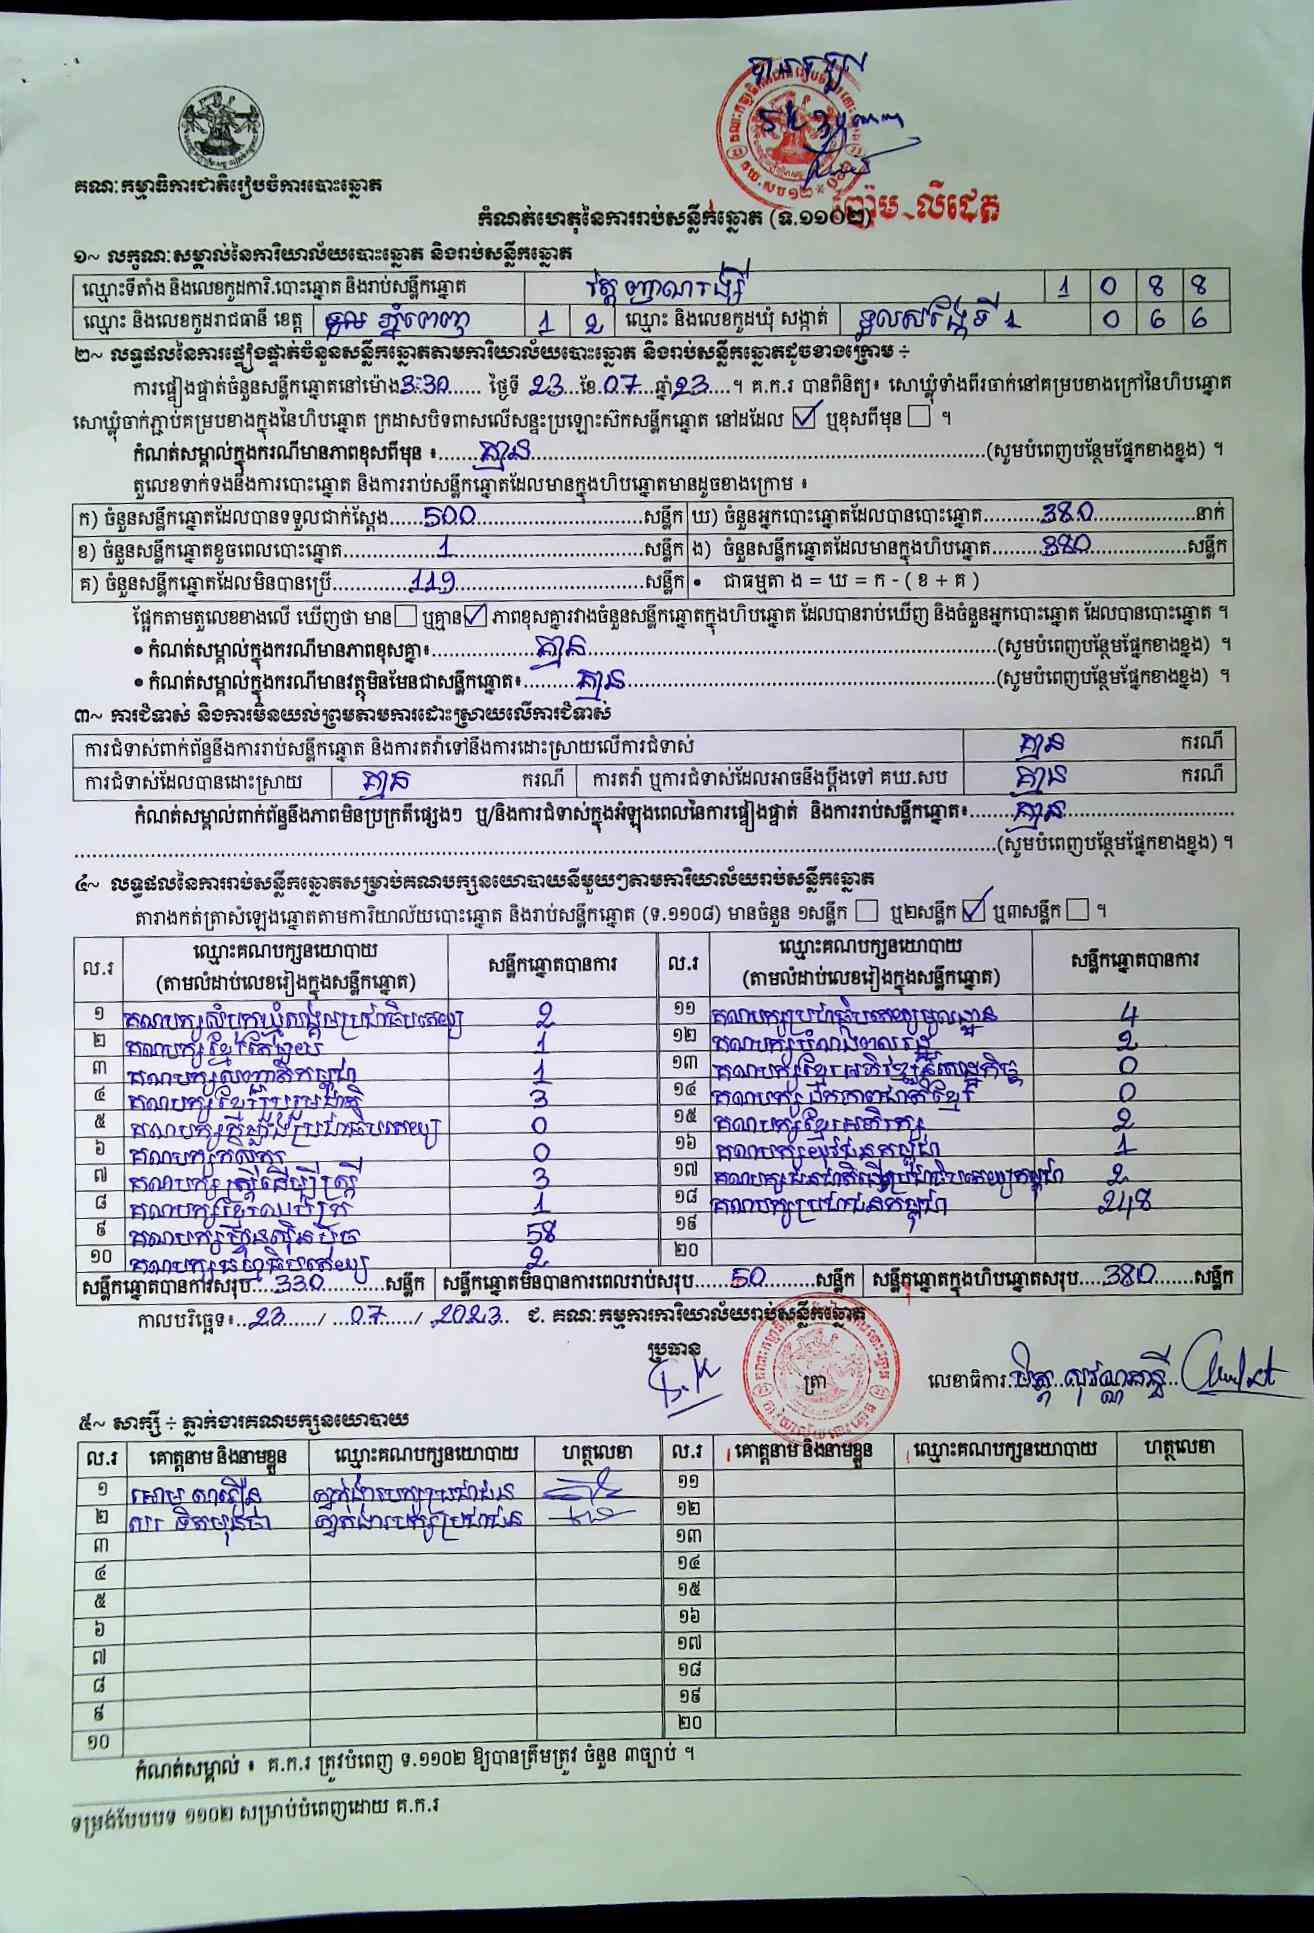 គណៈកម្មាធិការជាតិរៀបចំការបោះឆ្នោត
ញ៉ែម លីដេត
កំណត់ហេតុនៃការរាប់សន្លឹកឆ្នោត (ទ.១១០២)
១~ លក្ខណៈសម្គាល់នៃការិយាល័យបោះឆ្នោត និងរាប់សន្លឹកឆ្នោត
ឈ្មោះទីតាំង និងលេខកូដការិ.បោះឆ្នោត និងរាប់សន្លឹកឆ្នោត វត្ត ញាណរង្សី 1 0 8 8
ឈ្មោះ និងលេខកូដរាជធានី ខេត្ត ភ្នំពេញ 1 2 ឈ្មោះ និងលេខកូដឃុំ សង្កាត់ ទួលសង្កែទី 1 0 6 6
២~ លទ្ធផលនៃការផ្ទៀងផ្ទាត់ចំនួនសន្លឹកឆ្នោតតាមការិយាល័យបោះឆ្នោត និងរាប់សន្លឹកឆ្នោតដូចខាងក្រោម ÷
ការផ្ទៀងផ្ទាត់ចំនួនសន្លឹកឆ្នោតនៅម៉ោង 3:30 ថ្ងៃទី 23 ខែ 07 ឆ្នាំ 23 ។ គ.ក.រ បានពិនិត្យ៖ សោឃ្លុំទាំងពីរចាក់នៅគម្របខាងក្រៅនៃហិបឆ្នោត
សោឃ្លុំចាក់ភ្ជាប់គម្របខាងក្នុងនៃហិបឆ្នោត ក្រដាសបិទពាសលើសន្ទះប្រឡោះស៊កសន្លឹកឆ្នោត នៅដដែល ☑ ឬខុសពីមុន ☐ ។
កំណត់សម្គាល់ក្នុងករណីមានភាពខុសពីមុន ៖ គ្មាន (សូមបំពេញបន្ថែមផ្នែកខាងខ្នង) ។
តួលេខទាក់ទងនឹងការបោះឆ្នោត និងការរាប់សន្លឹកឆ្នោតដែលមានក្នុងហិបឆ្នោតមានដូចខាងក្រោម ៖
ក) ចំនួនសន្លឹកឆ្នោតដែលបានទទួលជាក់ស្តែង 500 សន្លឹក ឃ) ចំនួនអ្នកបោះឆ្នោតដែលបានបោះឆ្នោត 380 នាក់
ខ) ចំនួនសន្លឹកឆ្នោតខូចពេលបោះឆ្នោត 1 សន្លឹក ង) ចំនួនសន្លឹកឆ្នោតដែលមានក្នុងហិបឆ្នោត 380 សន្លឹក
គ) ចំនួនសន្លឹកឆ្នោតដែលមិនបានប្រើ 119 សន្លឹក • ជាធម្មតា ង = ឃ = ក - ( ខ + គ )
ផ្អែកតាមតួលេខខាងលើ ឃើញថា មាន ☐ ឬគ្មាន ☑ ភាពខុសគ្នារវាងចំនួនសន្លឹកឆ្នោតក្នុងហិបឆ្នោត ដែលបានរាប់ឃើញ និងចំនួនអ្នកបោះឆ្នោត ដែលបានបោះឆ្នោត ។
• កំណត់សម្គាល់ក្នុងករណីមានភាពខុសគ្នា៖ គ្មាន (សូមបំពេញបន្ថែមផ្នែកខាងខ្នង) ។
• កំណត់សម្គាល់ក្នុងករណីមានវត្ថុមិនមែនជាសន្លឹកឆ្នោត៖ គ្មាន (សូមបំពេញបន្ថែមផ្នែកខាងខ្នង) ។
៣~ ការជំទាស់ និងការមិនយល់ព្រមតាមការដោះស្រាយលើការជំទាស់
ការជំទាស់ពាក់ព័ន្ធនឹងការរាប់សន្លឹកឆ្នោត និងការតវ៉ាទៅនឹងការដោះស្រាយលើការជំទាស់ គ្មាន ករណី
ការជំទាស់ដែលបានដោះស្រាយ គ្មាន ករណី ការតវ៉ា ឬការជំទាស់ដែលអាចនឹងប្តឹងទៅ គឃ.សប គ្មាន ករណី
កំណត់សម្គាល់ពាក់ព័ន្ធនឹងភាពមិនប្រក្រតីផ្សេងៗ ឬ/និងការជំទាស់ក្នុងអំឡុងពេលនៃការផ្ទៀងផ្ទាត់ និងការរាប់សន្លឹកឆ្នោត៖ គ្មាន
(សូមបំពេញបន្ថែមផ្នែកខាងខ្នង) ។
៤~ លទ្ធផលនៃការរាប់សន្លឹកឆ្នោតសម្រាប់គណបក្សនយោបាយនីមួយៗតាមការិយាល័យរាប់សន្លឹកឆ្នោត
តារាងកត់ត្រាសំឡេងឆ្នោតតាមការិយាល័យបោះឆ្នោត និងរាប់សន្លឹកឆ្នោត (ទ.១១០៨) មានចំនួន ១សន្លឹក ☐ ឬ២សន្លឹក ☑ ឬ៣សន្លឹក ☐ ។
ល.រ ឈ្មោះគណបក្សនយោបាយ (តាមលំដាប់លេខរៀងក្នុងសន្លឹកឆ្នោត) សន្លឹកឆ្នោតបានការ ល.រ ឈ្មោះគណបក្សនយោបាយ (តាមលំដាប់លេខរៀងក្នុងសន្លឹកឆ្នោត) សន្លឹកឆ្នោតបានការ
១ គណបក្សសំបុកឃ្មុំសង្គមប្រជាធិបតេយ្យ 2 ១១ គណបក្សប្រជាធិបតេយ្យមូលដ្ឋាន 4
២ គណបក្សខ្មែរតែមួយ 1 ១២ គណបក្សបំណងពលរដ្ឋ 2
៣ គណបក្សសញ្ជាតិកម្ពុជា 1 ១៣ គណបក្សខ្មែរអភិវឌ្ឍន៍សេដ្ឋកិច្ច 0
៤ គណបក្សខ្មែររួបរួមជាតិ 3 ១៤ គណបក្សឯកភាពជាតិខ្មែរ 0
៥ គណបក្សក្តីស្រឡាញ់ប្រជាធិបតេយ្យ 0 ១៥ គណបក្សខ្មែរអភិរក្ស 2
៦ គណបក្សកសិករ 0 ១៦ គណបក្សយុវជនកម្ពុជា 1
៧ គណបក្សស្ត្រីដើម្បីស្ត្រី 3 ១៧ គណបក្សជនជាតិដើមប្រជាធិបតេយ្យកម្ពុជា 2
៨ គណបក្សខ្មែរឈប់ក្រ 1 ១៨ គណបក្សប្រជាជនកម្ពុជា 248
៩ គណបក្សហ៊្វុនស៊ិនប៉ិច 58 ១៩
១០ គណបក្សធម្មាធិបតេយ្យ 2 ២០
សន្លឹកឆ្នោតបានការសរុប 330 សន្លឹក សន្លឹកឆ្នោតមិនបានការពេលរាប់សរុប 50 សន្លឹក សន្លឹកឆ្នោតក្នុងហិបឆ្នោតសរុប 380 សន្លឹក
កាលបរិច្ឆេទ៖ 23 / 07 / 2023 ជ. គណៈកម្មការការិយាល័យរាប់សន្លឹកឆ្នោត
ប្រធាន ត្រា លេខាធិការ
៥~ សាក្សី ÷ ភ្នាក់ងារគណបក្សនយោបាយ
ល.រ គោត្តនាម និងនាមខ្លួន ឈ្មោះគណបក្សនយោបាយ ហត្ថលេខា ល.រ គោត្តនាម និងនាមខ្លួន ឈ្មោះគណបក្សនយោបាយ ហត្ថលេខា
១ ភ្នាក់ងារបក្សប្រជាជន ១១
២ ភ្នាក់ងារបក្សប្រជាជន ១២
៣ ១៣
៤ ១៤
៥ ១៥
៦ ១៦
៧ ១៧
៨ ១៨
៩ ១៩
១០ ២០
កំណត់សម្គាល់ ៖ គ.ក.រ ត្រូវបំពេញ ទ.១១០២ ឱ្យបានត្រឹមត្រូវ ចំនួន ៣ច្បាប់ ។
ទម្រង់បែបបទ ១១០២ សម្រាប់បំពេញដោយ គ.ក.រ